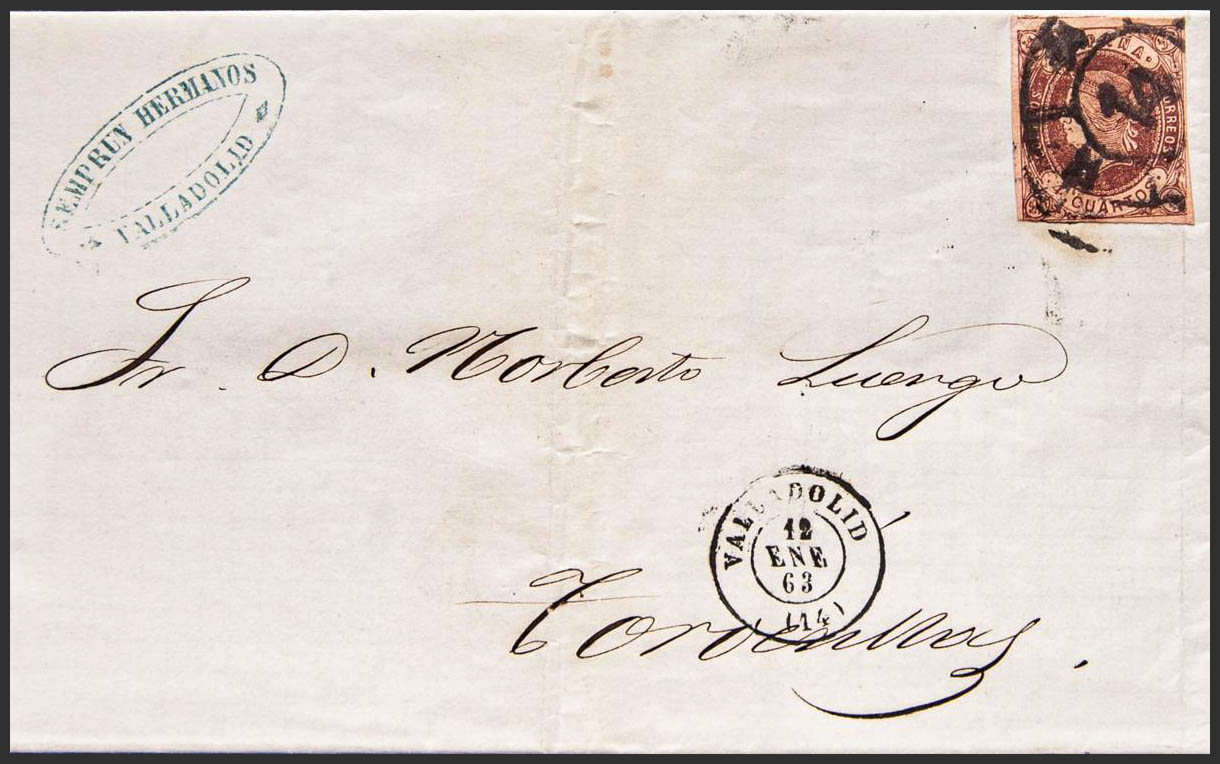 SEMPRUN HERMANOS
VALLADOLID
ESPAÑA
CORREOS
4 CUARTOS
2
Sr. D. Norberto Luengo
VALLADOLID
12
ENE
63
(14)
Torrecillas.